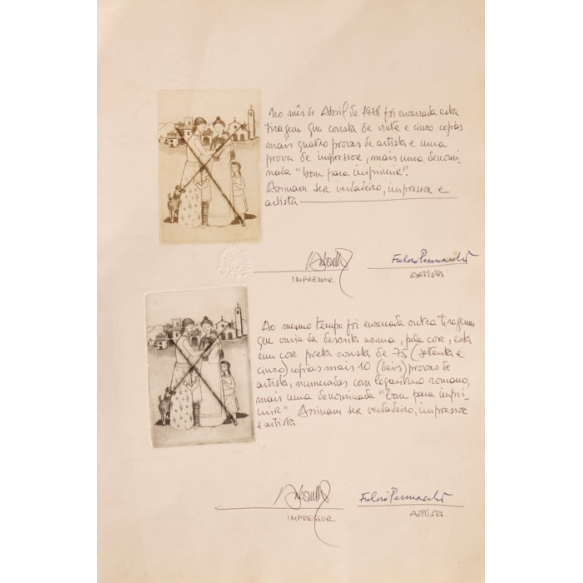 No mês de Abril de 1978 foi encerrada esta
tiragem que consta de vinte e cinco cópias
mais quatro provas de artista e uma
prova de impressor, mais uma denomi-
nada "bom para imprimir".
Assinam ser verdadeiro, impressor e
artista
Fulvio Pennacchi
IMPRESSOR
ARTISTA
Ao mesmo tempo foi encerrada outra tiragem
que varia da descrita acima, pela cor, esta
em cor preta consta de 75 (setenta e
cinco) cópias mais 10 (dez) provas de
artista, numeradas com algarismo romano,
mais uma denominada "bom para impri-
mir". Assinam ser verdadeiro, impressor
e artista.
Fulvio Pennacchi
IMPRESSOR
ARTISTA